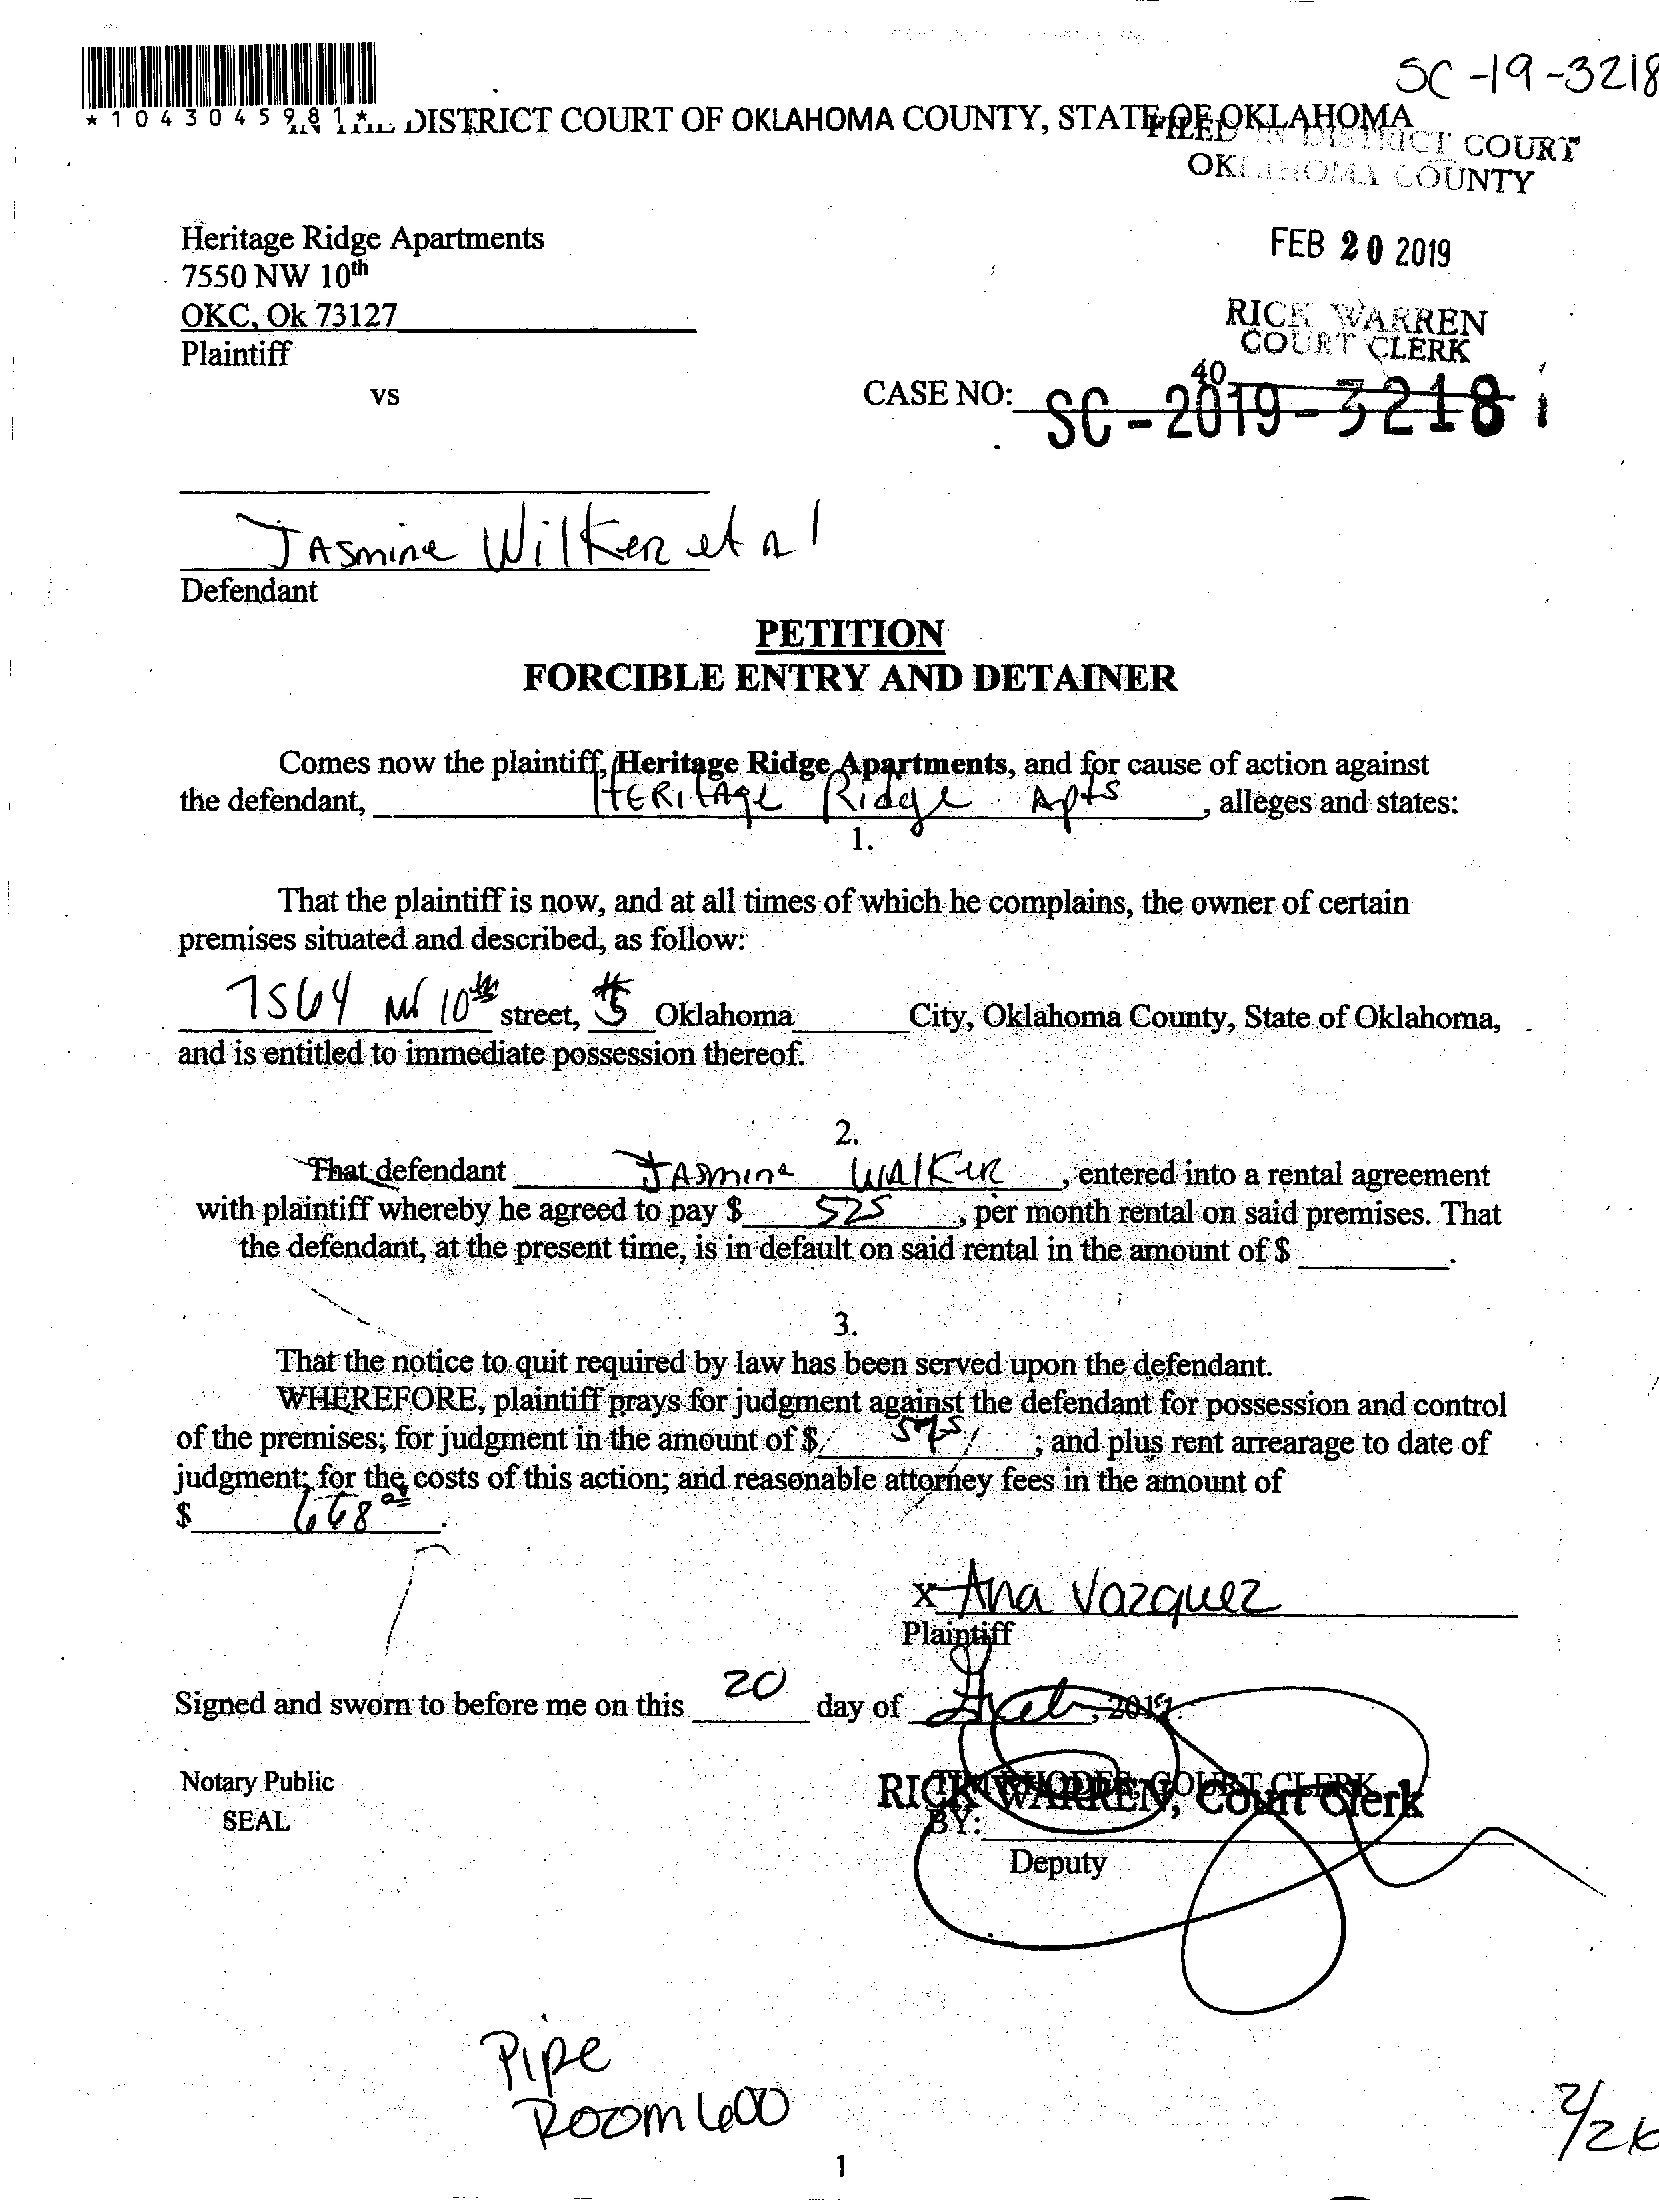 SC-19-3218
*1043045981*
IN THE DISTRICT COURT OF OKLAHOMA COUNTY, STATE OF OKLAHOMA
FILED IN DISTRICT COURT
OKLAHOMA COUNTY
Heritage Ridge Apartments
FEB 20 2019
7550 NW 10th
OKC, Ok 73127
RICK WARREN
COURT CLERK
Plaintiff
40
vs
CASE NO: SC-2019-3218
JAsmine Wilker et al
Defendant
PETITION
FORCIBLE ENTRY AND DETAINER
Comes now the plaintiff, Heritage Ridge Apartments, and for cause of action against
the defendant, HERitAge Ridge Apts, alleges and states:
1.
That the plaintiff is now, and at all times of which he complains, the owner of certain
premises situated and described, as follow:
7564 NW 10th street, #5 Oklahoma City, Oklahoma County, State of Oklahoma,
and is entitled to immediate possession thereof.
2.
That defendant JAsmine WAlKer, entered into a rental agreement
with plaintiff whereby he agreed to pay $ 525, per month rental on said premises. That
the defendant, at the present time, is in default on said rental in the amount of $
3.
That the notice to quit required by law has been served upon the defendant.
WHEREFORE, plaintiff prays for judgment against the defendant for possession and control
of the premises; for judgment in the amount of $ ; and plus rent arrearage to date of
judgment; for the costs of this action; and reasonable attorney fees in the amount of
$ 668
x Ana Vazquez
Plaintiff
Signed and sworn to before me on this 20 day of Feb, 2019.
Notary Public
SEAL
RICK WARREN, Court Clerk
TIM RHODES, COURT CLERK
BY:
Deputy
Pipe
Room 600
2/26
1